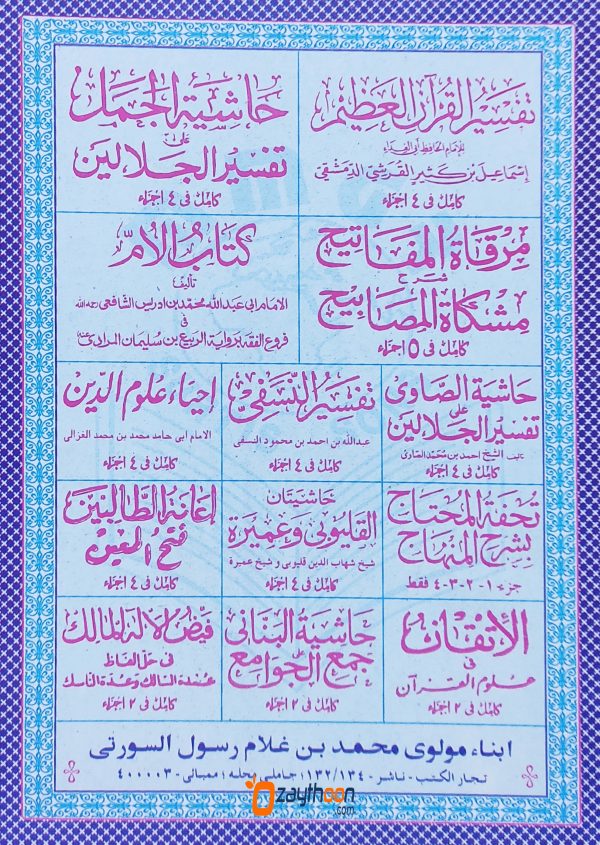 تفسير القرآن العظيم
للإمام الحافظ أبي الفداء
إسماعيل بن كثير القرشي الدمشقي
كامل في ٤ أجزاء
حاشية الجمل
على
تفسير الجلالين
كامل في ٤ أجزاء
مرقاة المفاتيح
شرح
مشكاة المصابيح
كامل في ٥ أجزاء
كتاب الأم
تأليف
الامام ابي عبدالله محمد بن ادريس الشافعي رحمه الله
في
فروع الفقه برواية الربيع بن سليمان المرادي
حاشية الصاوى
على
تفسير الجلالين
تاليف الشيخ احمد بن محمد الصاوى
كامل في ٤ أجزاء
تفسير النسفي
عبدالله بن احمد بن محمود النسفى
كامل في ٤ أجزاء
إحياء علوم الدين
الامام ابى حامد محمد بن محمد الغزالى
كامل في ٤ أجزاء
تحفة المحتاج
بشرح المنهاج
جزء ١-٢-٣-٤ فقط
حاشيتان
القليوبي وعميرة
شيخ شهاب الدين قليوبى و شيخ عميرة
كامل في ٤ أجزاء
إعانة الطالبين
فتح المعين
كامل في ٤ أجزاء
الإتقان
في
علوم القرآن
كامل في ٢ أجزاء
حاشية البناني
على
جمع الجوامع
كامل في ٢ أجزاء
فيض الإله المالك
في حل الفاظ
عمدة السالك وعدة الناسك
كامل في ٢ أجزاء
ابناء مولوى محمد بن غلام رسول السورتى
تجار الكتب - ناشر - ١٣٢/١٣٤؛ جاملى محله؛ ممبائى - ٤٠٠٠٠٣
zaythoon
.com